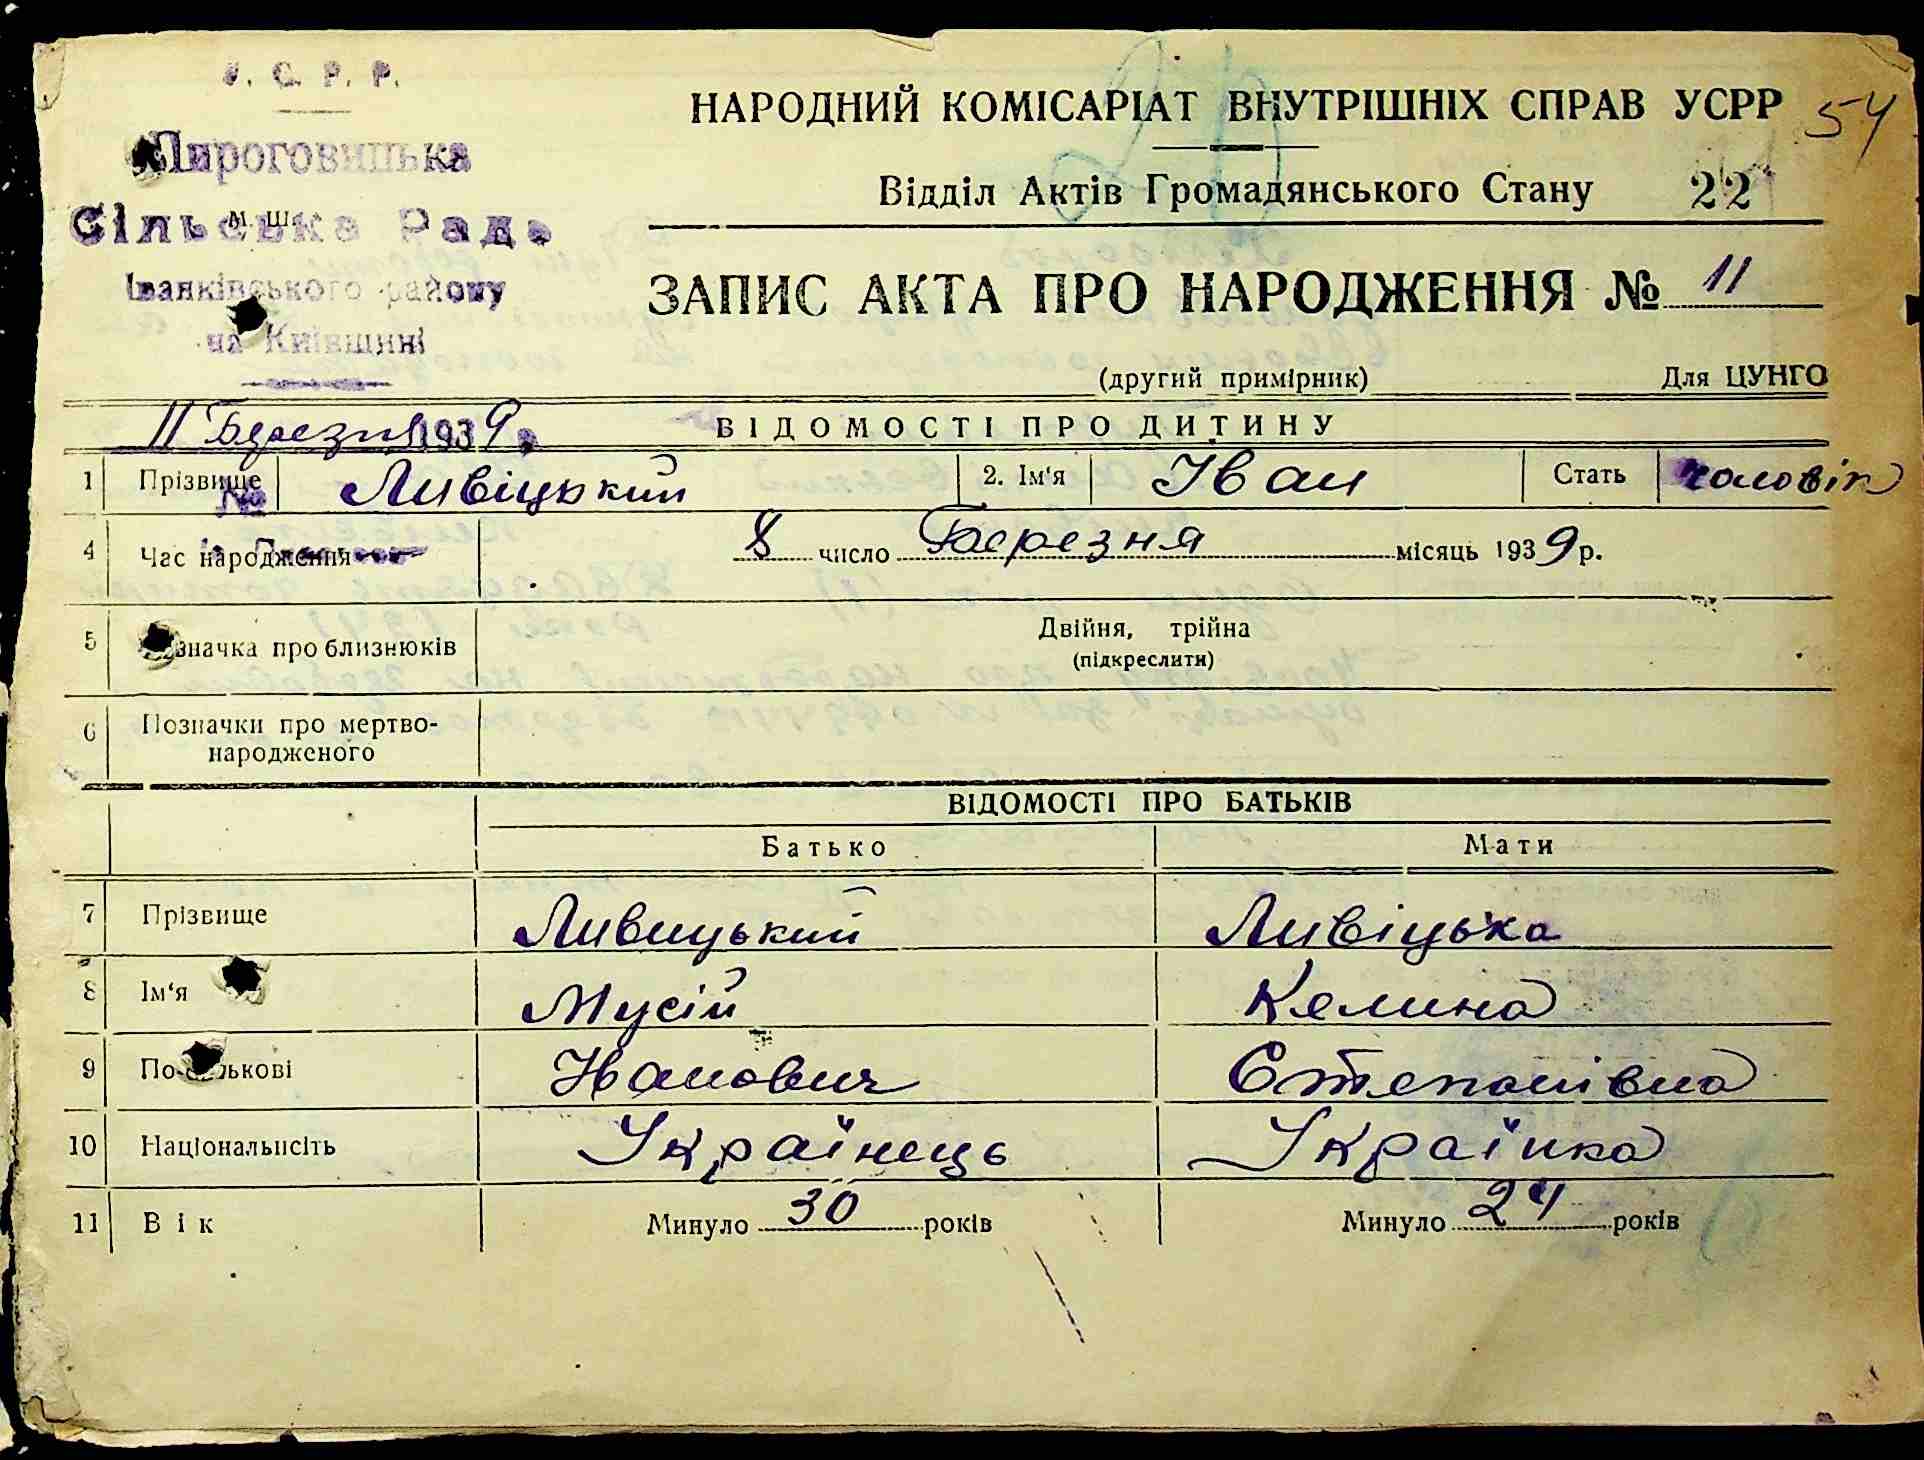 У. С. Р. Р.
Пироговицька
Сільська Рада
м. ш.
Іванківського району
на Київщині
НАРОДНИЙ КОМІСАРІАТ ВНУТРІШНІХ СПРАВ УСРР
54
Відділ Актів Громадянського Стану 22
ЗАПИС АКТА ПРО НАРОДЖЕННЯ № 11
(другий примірник) Для ЦУНГО
11 Березня 1939 р.
ВІДОМОСТІ ПРО ДИТИНУ
1 Прізвище Ливіцький 2. Ім'я Іван Стать чоловік
№
4 Час народження 8 число Березня місяць 1939 р.
5 значка про близнюків Двійня, трійна
(підкреслити)
6 Позначки про мертво-
народженого
ВІДОМОСТІ ПРО БАТЬКІВ
Батько Мати
7 Прізвище Ливицький Ливіцька
8 Ім'я Мусій Келина
9 По-батькові Іванович Степанівна
10 Національність Українець Українка
11 Вік Минуло 30 років Минуло 24 років